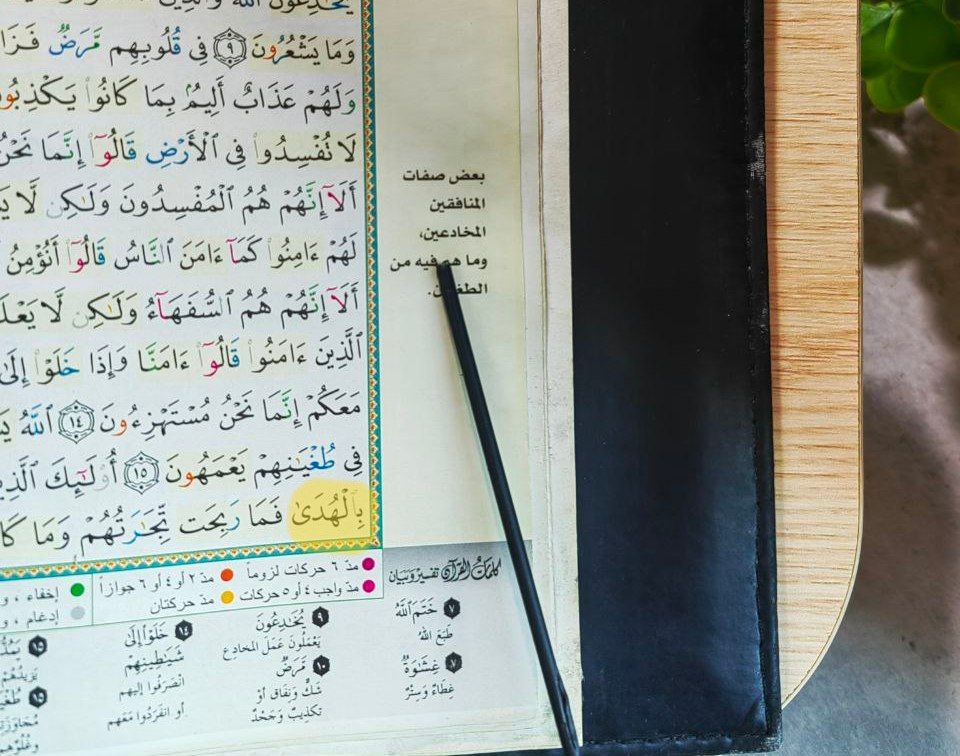 وَمَا يَشْعُرُونَ ٩ فِى قُلُوبِهِم مَّرَضٌ
وَلَهُمْ عَذَابٌ أَلِيمٌۢ بِمَا كَانُوا۟
لَا تُفْسِدُوا۟ فِى ٱلْأَرْضِ قَالُوٓا۟ إِنَّمَا
أَلَآ إِنَّهُمْ هُمُ ٱلْمُفْسِدُونَ وَلَـٰكِن لَّا
لَهُمْ ءَامِنُوا۟ كَمَآ ءَامَنَ ٱلنَّاسُ قَالُوٓا۟ أَنُؤْمِنُ
أَلَآ إِنَّهُمْ هُمُ ٱلسُّفَهَآءُ وَلَـٰكِن لَّا
ٱلَّذِينَ ءَامَنُوا۟ قَالُوٓا۟ ءَامَنَّا وَإِذَا خَلَوْا۟ إِلَىٰ
مَعَكُمْ إِنَّمَا نَحْنُ مُسْتَهْزِءُونَ ١٤ ٱللَّهُ
فِى طُغْيَـٰنِهِمْ يَعْمَهُونَ ١٥ أُو۟لَـٰٓئِكَ
بِٱلْهُدَىٰ فَمَا رَبِحَت تِّجَـٰرَتُهُمْ وَمَا
بعض صفات
المنافقين
المخادعين،
وما هم فيه من
مدّ ٦ حركات لزوماً
مدّ ٢ أو ٤ أو ٦ جوازاً
إخفاء
مدّ واجب ٤ أو ٥ حركات
مدّ حركتان
إدغام
كلمات القرآن تفسير وبيان
٧ خَتَمَ اللَّهُ
طَبَعَ اللهُ
٧ غِشَاوَةٌ
غِطَاءٌ وَسِتْرٌ
٩ يُخَادِعُونَ
يَعْمَلُونَ عَمَلَ المُخادِعِ
١٠ مَرَضٌ
شَكٌّ وَنِفَاق أَوْ
تكذيبٌ وَجَحْدٌ
١٤ خَلَوْا إِلَى
شَيَاطِينِهِمْ
انْصَرَفُوا إليهم
أو انفَرَدُوا مَعَهم
١٥
١٥